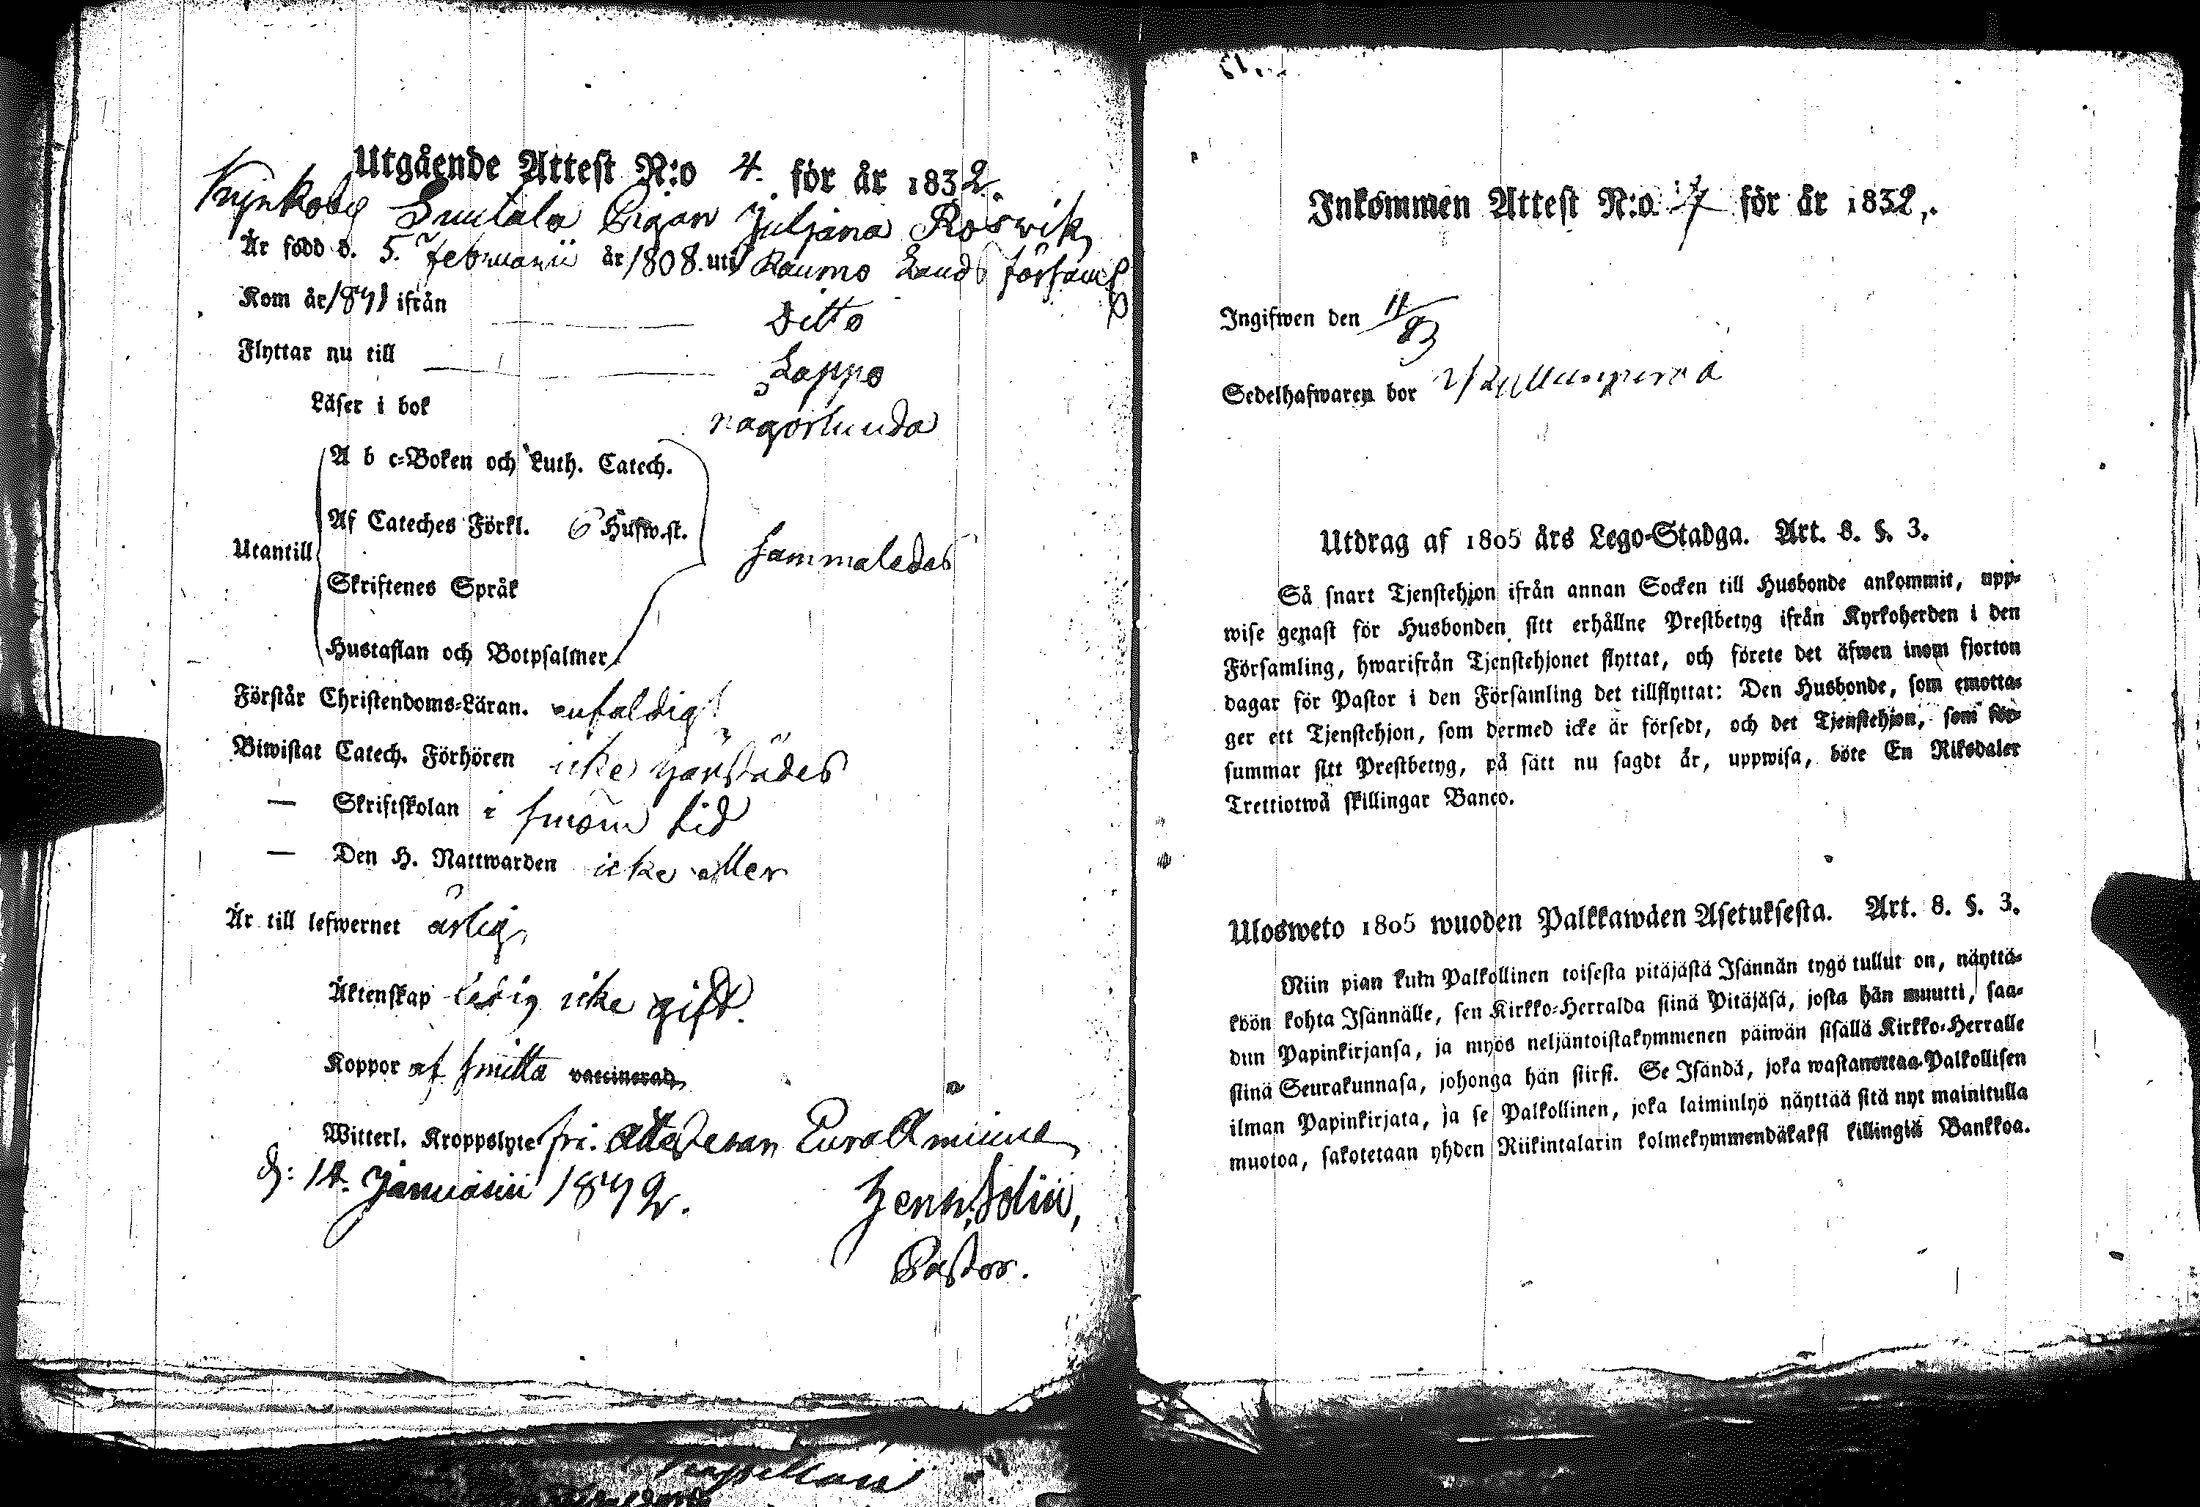 Utgående Attest N:o 4. för år 1832.
Pigan Juljana Rosvik
Är född d. 5. Februarii år 1808. uti Raumo Lands församl
Kom år 1831 ifrån Ditto
Flyttar nu till Lappo
Läser i bok någorlunda
A b c-Boken och Luth. Catech.
Af Cateches Förkl. 6 Hufw.st.
Utantill sammaledes
Skriftenes Språk
Hustaflan och Botpsalmer
Förstår Christendoms-Läran. enfaldigt
Biwistat Catech. Förhören icke härstädes
— Skriftskolan i sinom tid
— Den H. Nattwarden icke eller
Är till lefwernet ärlig
Äktenskap ledig icke gift.
Koppor af smitta vaccinerad
Witterl. Kroppslyte fri. Attesteran Euraåminne
d: 14. Januarii 1832.
Pastor.
Inkommen Attest N:o 17 för år 1832.
Ingifwen den 11/93
Sedelhafwaren bor
Utdrag af 1805 års Lego-Stadga. Art. 8. §. 3.
Så snart Tjenstehjon ifrån annan Socken till Husbonde ankommit, upp-
wise genast för Husbonden sitt erhållne Prestbetyg ifrån Kyrkoherden i den
Församling, hwarifrån Tjenstehjonet flyttat, och förete det äfwen inom fjorton
dagar för Pastor i den Församling det tillflyttat: Den Husbonde, som emotta-
ger ett Tjenstehjon, som dermed icke är försedt, och det Tjenstehjon, som för-
summar sitt Prestbetyg, på sätt nu sagdt är, uppwisa, böte En Riksdaler
Trettiotwå skillingar Banco.
Ulosweto 1805 wuoden Palkkawäen Asetuksesta. Art. 8. §. 3.
Niin pian kuin Palkollinen toisesta pitäjästä Isännän tygö tullut on, näyttä-
köön kohta Isännälle, sen Kirkko-Herralda siinä Pitäjäsä, josta hän muutti, saa-
dun Papinkirjansa, ja myös neljäntoistakymmenen päiwän sisällä Kirkko-Herralle
siinä Seurakunnasa, johonga hän siirsi. Se Isändä, joka wastanottaa Palkollisen
ilman Papinkirjata, ja se Palkollinen, joka laiminlyö näyttää sitä nyt mainitulla
muotoa, sakotetaan yhden Riikintalarin kolmekymmendäkaksi killingiä Bankkoa.